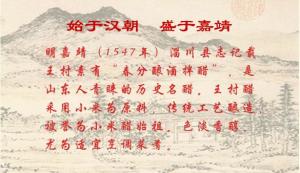 始于汉朝 盛于嘉靖
明嘉靖(1547年)淄川县志记载
王村素有"春分酿酒拌醋",是
山东人青睐的历史名醋。王村醋
采用小米为原料,传统工艺酿造,
被誉为小米醋始祖。色淡香醇,
尤为适宜烹调菜肴。